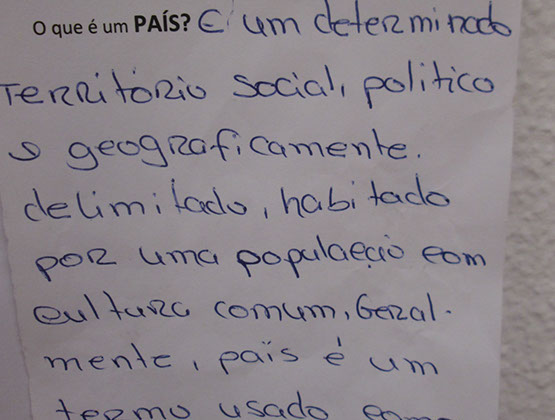 O que é um PAÍS? É um determinado
território social, politico
e geograficamente.
delimitado, habitado
por uma população com
cultura comum. Geral-
mente, país é um
termo usado como